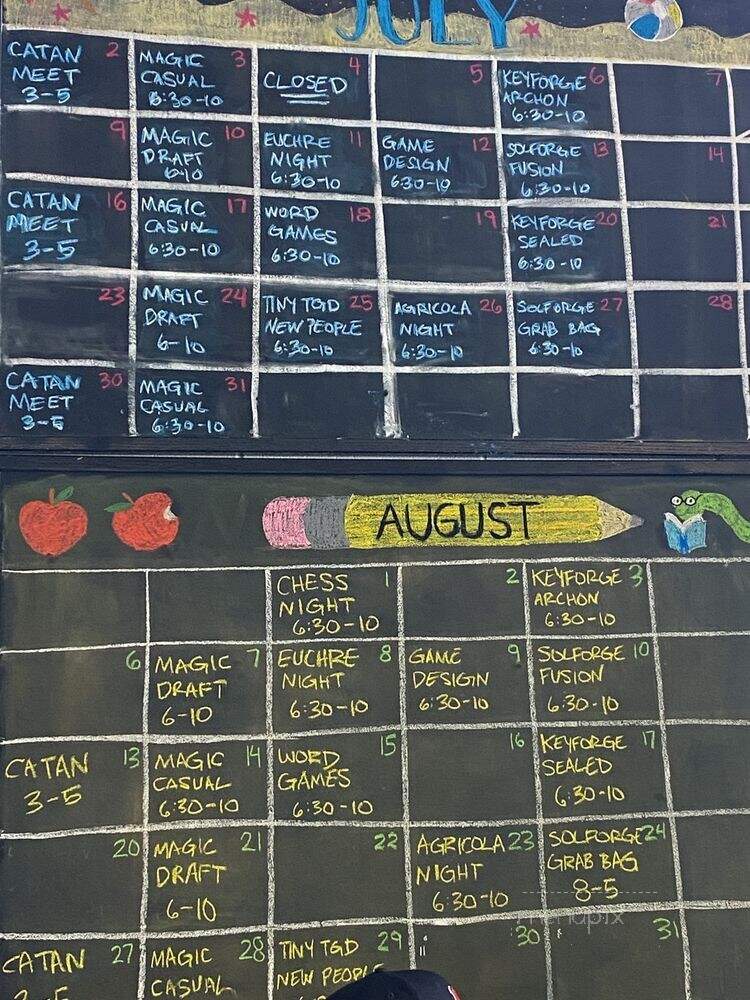 JULY
CATAN MEET 3-5 2
MAGIC CASUAL 6:30-10 3
CLOSED 4
5
KEYFORGE ARCHON 6:30-10 6
7
9
MAGIC DRAFT 6-10 10
EUCHRE NIGHT 6:30-10 11
GAME DESIGN 6:30-10 12
SOLFORGE FUSION 6:30-10 13
14
CATAN MEET 3-5 16
MAGIC CASUAL 6:30-10 17
WORD GAMES 6:30-10 18
19
KEYFORGE SEALED 6:30-10 20
21
23
MAGIC DRAFT 6-10 24
TINY TGD NEW PEOPLE 6:30-10 25
AGRICOLA NIGHT 6:30-10 26
SOLFORGE GRAB BAG 6:30-10 27
28
CATAN MEET 3-5 30
MAGIC CASUAL 6:30-10 31
AUGUST
CHESS NIGHT 6:30-10 1
2
KEYFORGE ARCHON 6:30-10 3
6
MAGIC DRAFT 6-10 7
EUCHRE NIGHT 6:30-10 8
GAME DESIGN 6:30-10 9
SOLFORGE FUSION 6:30-10 10
CATAN 3-5 13
MAGIC CASUAL 6:30-10 14
WORD GAMES 6:30-10 15
16
KEYFORGE SEALED 6:30-10 17
20
MAGIC DRAFT 6-10 21
22
AGRICOLA NIGHT 6:30-10 23
SOLFORGE GRAB BAG 8-5 24
CATAN 3-5 27
MAGIC CASUAL 28
TINY TGD NEW PEOPLE 29
30
31